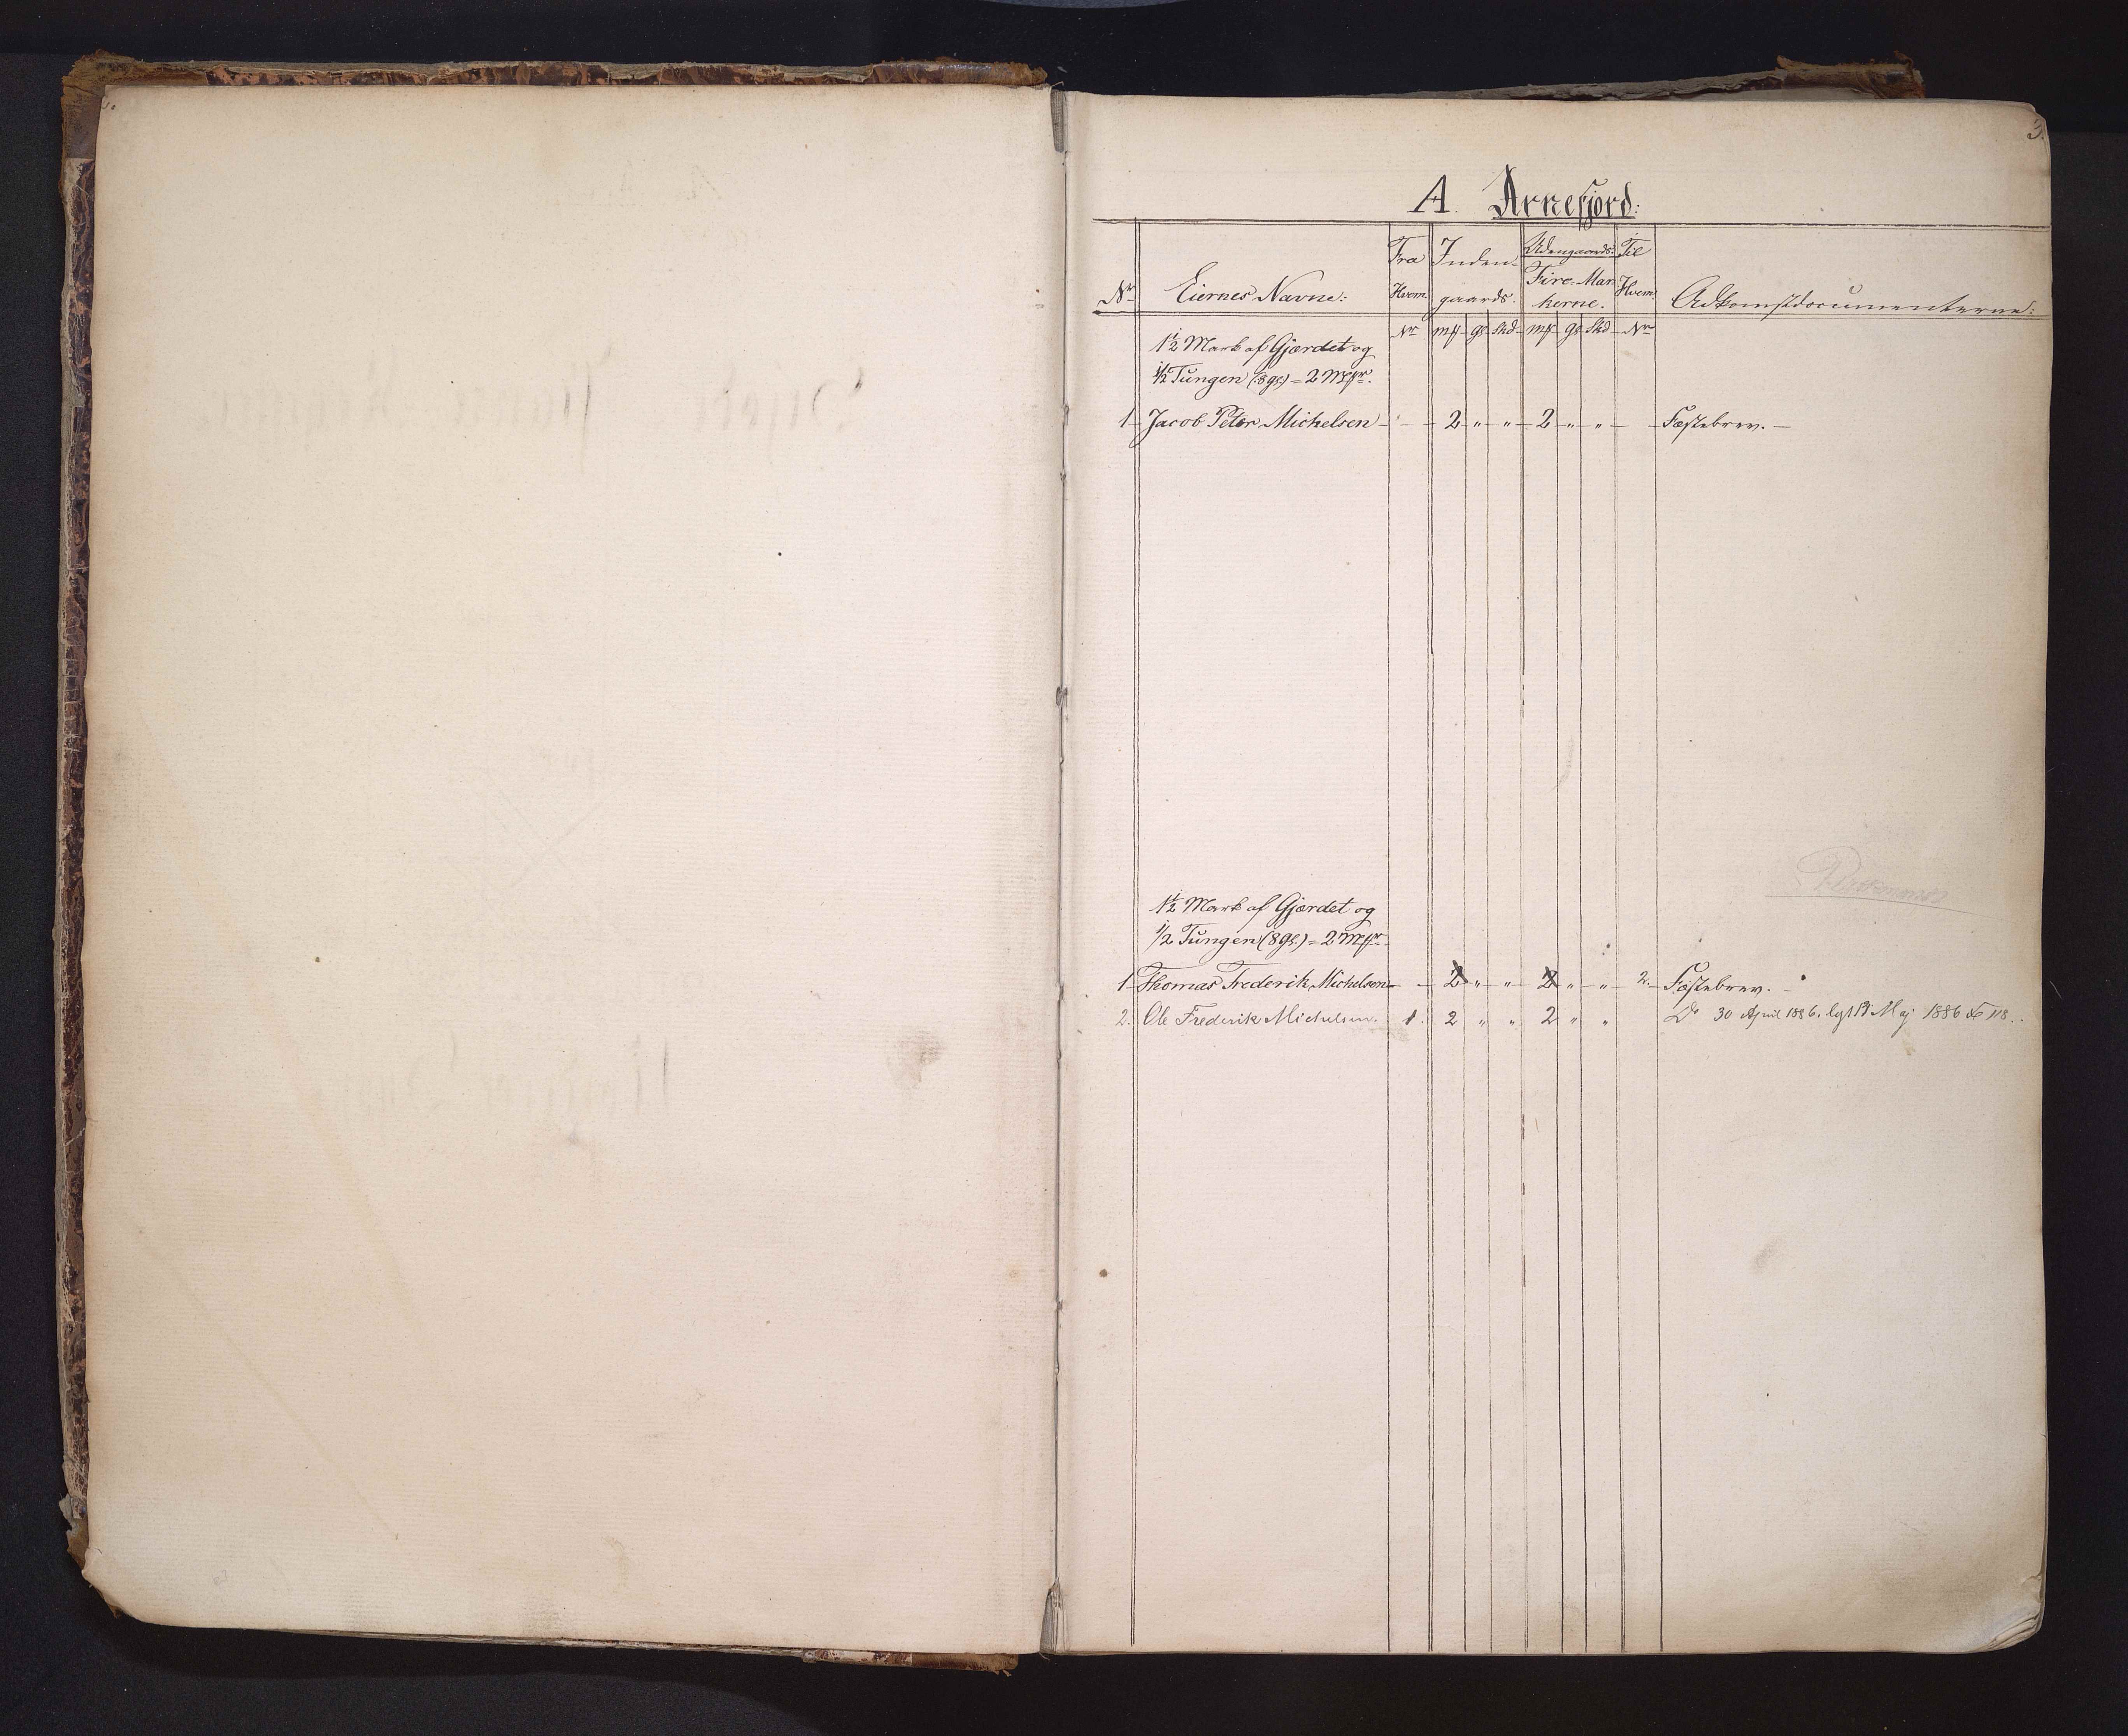 3.
A. Arnefjord:
Nr Eiernes Navne: Fra Hvem Inden- gaards. Udengaards. Fire-Mar- kerne. Til Hvem Adkomstdocumenterne:
Nr mk gs. Skd mk gs Skd Nr
1½ Mark af Gjærdet og
½ Tungen (8 gs.) = 2 Mkr.
1 Jacob Peter Michelsen - - 2 " " 2 " " - Fæstebrev. -
1½ Mark af Gjærdet og
½ Tungen (8 gs.) = 2 Mkr.
1 Thomas Frederik Michelsen - - 2 " " 2 " " 2. Fæstebrev. -
2. Ole Frederik Michelsen. 1. 2 " " 2 " " Do 30 April 1886. lyst 13 Maj 1886 118.